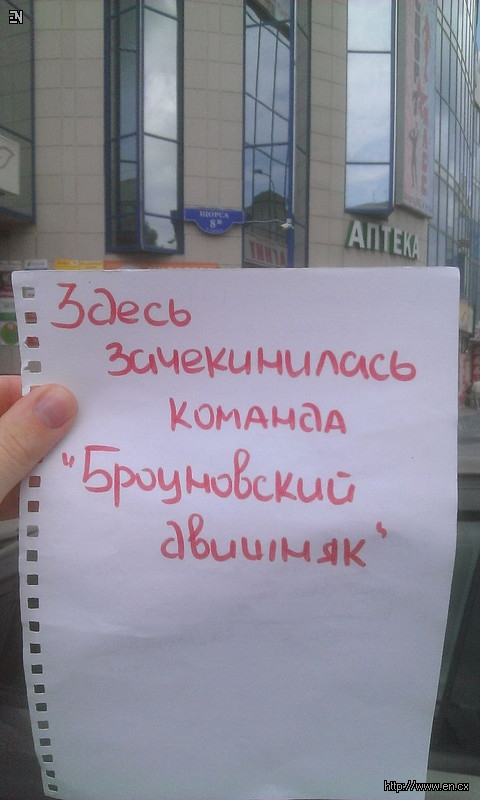 EN
ЩОРСА
8
АПТЕКА
Здесь
зачекинилась
команда
"Броуновский
двишняк"
http://www.en.cx